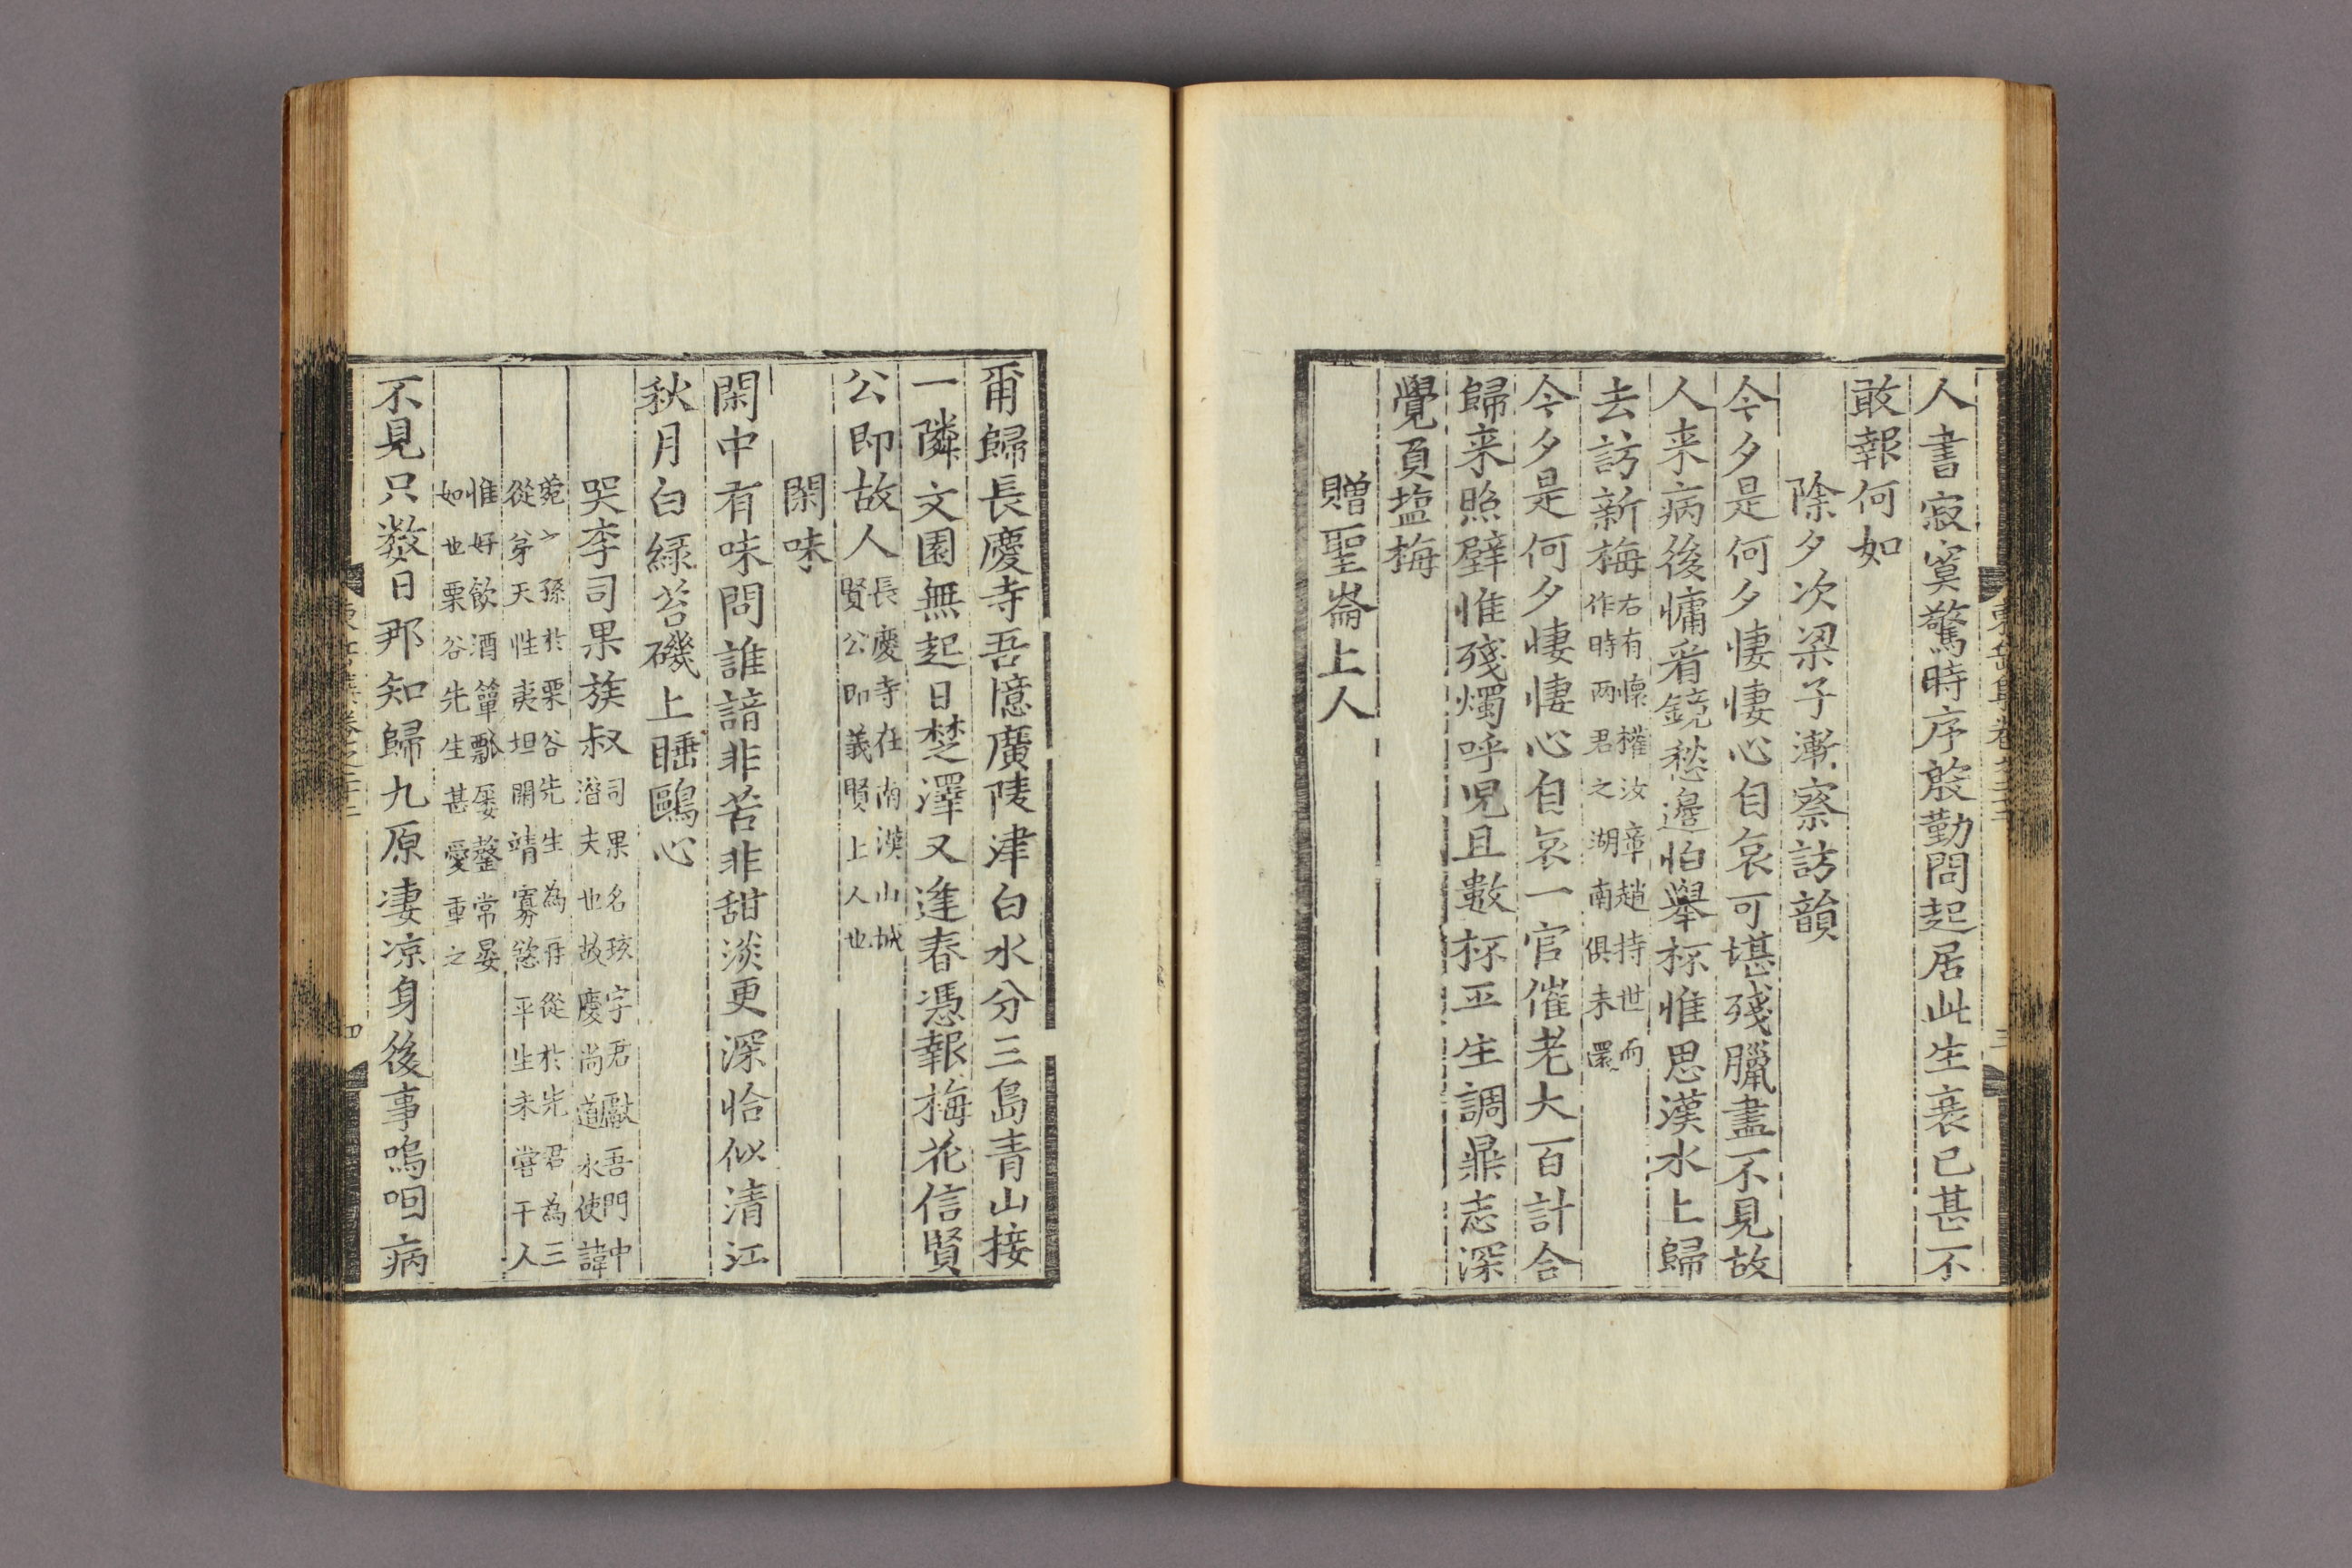 人書寂寞驚時序慇勤問起居此生衰已甚不
敢報何如
除夕次梁子漸察訪韻
今夕是何夕悽悽心自哀可堪殘臘盡不見故
人来病後慵看鏡愁邊怕舉杯惟思漢水上歸
去訪新梅
右有懷權汝章趙持世而
作時两君之湖南俱未還
今夕是何夕悽悽心自哀一官催老大百計合
歸来照壁惟殘燭呼児且數杯平生調鼎志深
覺負塩梅
贈聖崙上人
爾歸長慶寺吾憶廣陵津白水分三島青山接
一隣文園無起日楚澤又逢春憑報梅花信賢
公即故人
長慶寺在南漢山城
賢公即義賢上人也
閑味
閑中有味問誰諳非苦非甜淡更深恰似清江
秋月白緑苔磯上睡鷗心
哭李司果族叔
司果名珓字君獻吾門中
潛夫也故慶尚道水使諱
菀之孫於栗谷先生為再從於先君為三
從弟天性夷坦開靖寡慾平生未嘗干人
惟好飲酒簞瓢屡罄常晏
如也栗谷先生甚愛重之
不見只数日那知歸九原凄凉身後事嗚咽病